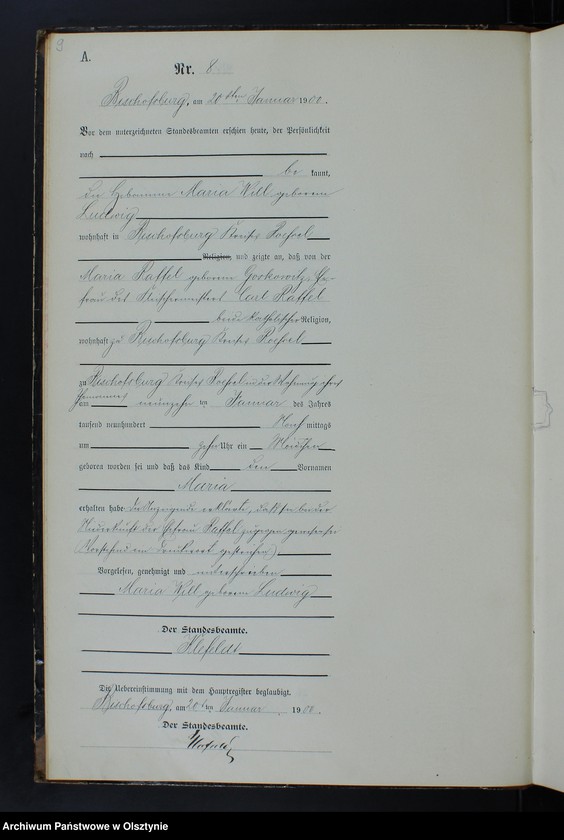 9
A.
Nr. 8
Bischofsburg, am 20ten Januar 1900.
Vor dem unterzeichneten Standesbeamten erschien heute, der Persönlichkeit
nach
be kannt,
die Hebamme Maria Will geborene
Ludwig
wohnhaft in Bischofsburg
Religion, und zeigte an, daß von der
Maria Raffel geborene Gorkowitz, Ehe-
frau des Carl Raffel
beide katholischer Religion,
wohnhaft zu Bischofsburg
zu Bischofsburg in der Wohnung ihres
Ehemannes
am neunzehn ten Januar des Jahres
tausend neunhundert Nach mittags
um zehn Uhr ein Mädchen
geboren worden sei und daß das Kind den Vornamen
Maria
erhalten habe. Die Anzeigende erklärte, daß sie bei der
Niederkunft der Ehefrau Raffel zugegen gewesen sei
(Vorstehend ein Druckwort gestrichen)
Vorgelesen, genehmigt und unterschrieben
Maria Will geborene Ludwig
Der Standesbeamte.
Die Uebereinstimmung mit dem Hauptregister beglaubigt.
Bischofsburg, am 20ten Januar 1900.
Der Standesbeamte.
Archiwum Państwowe w Olsztynie